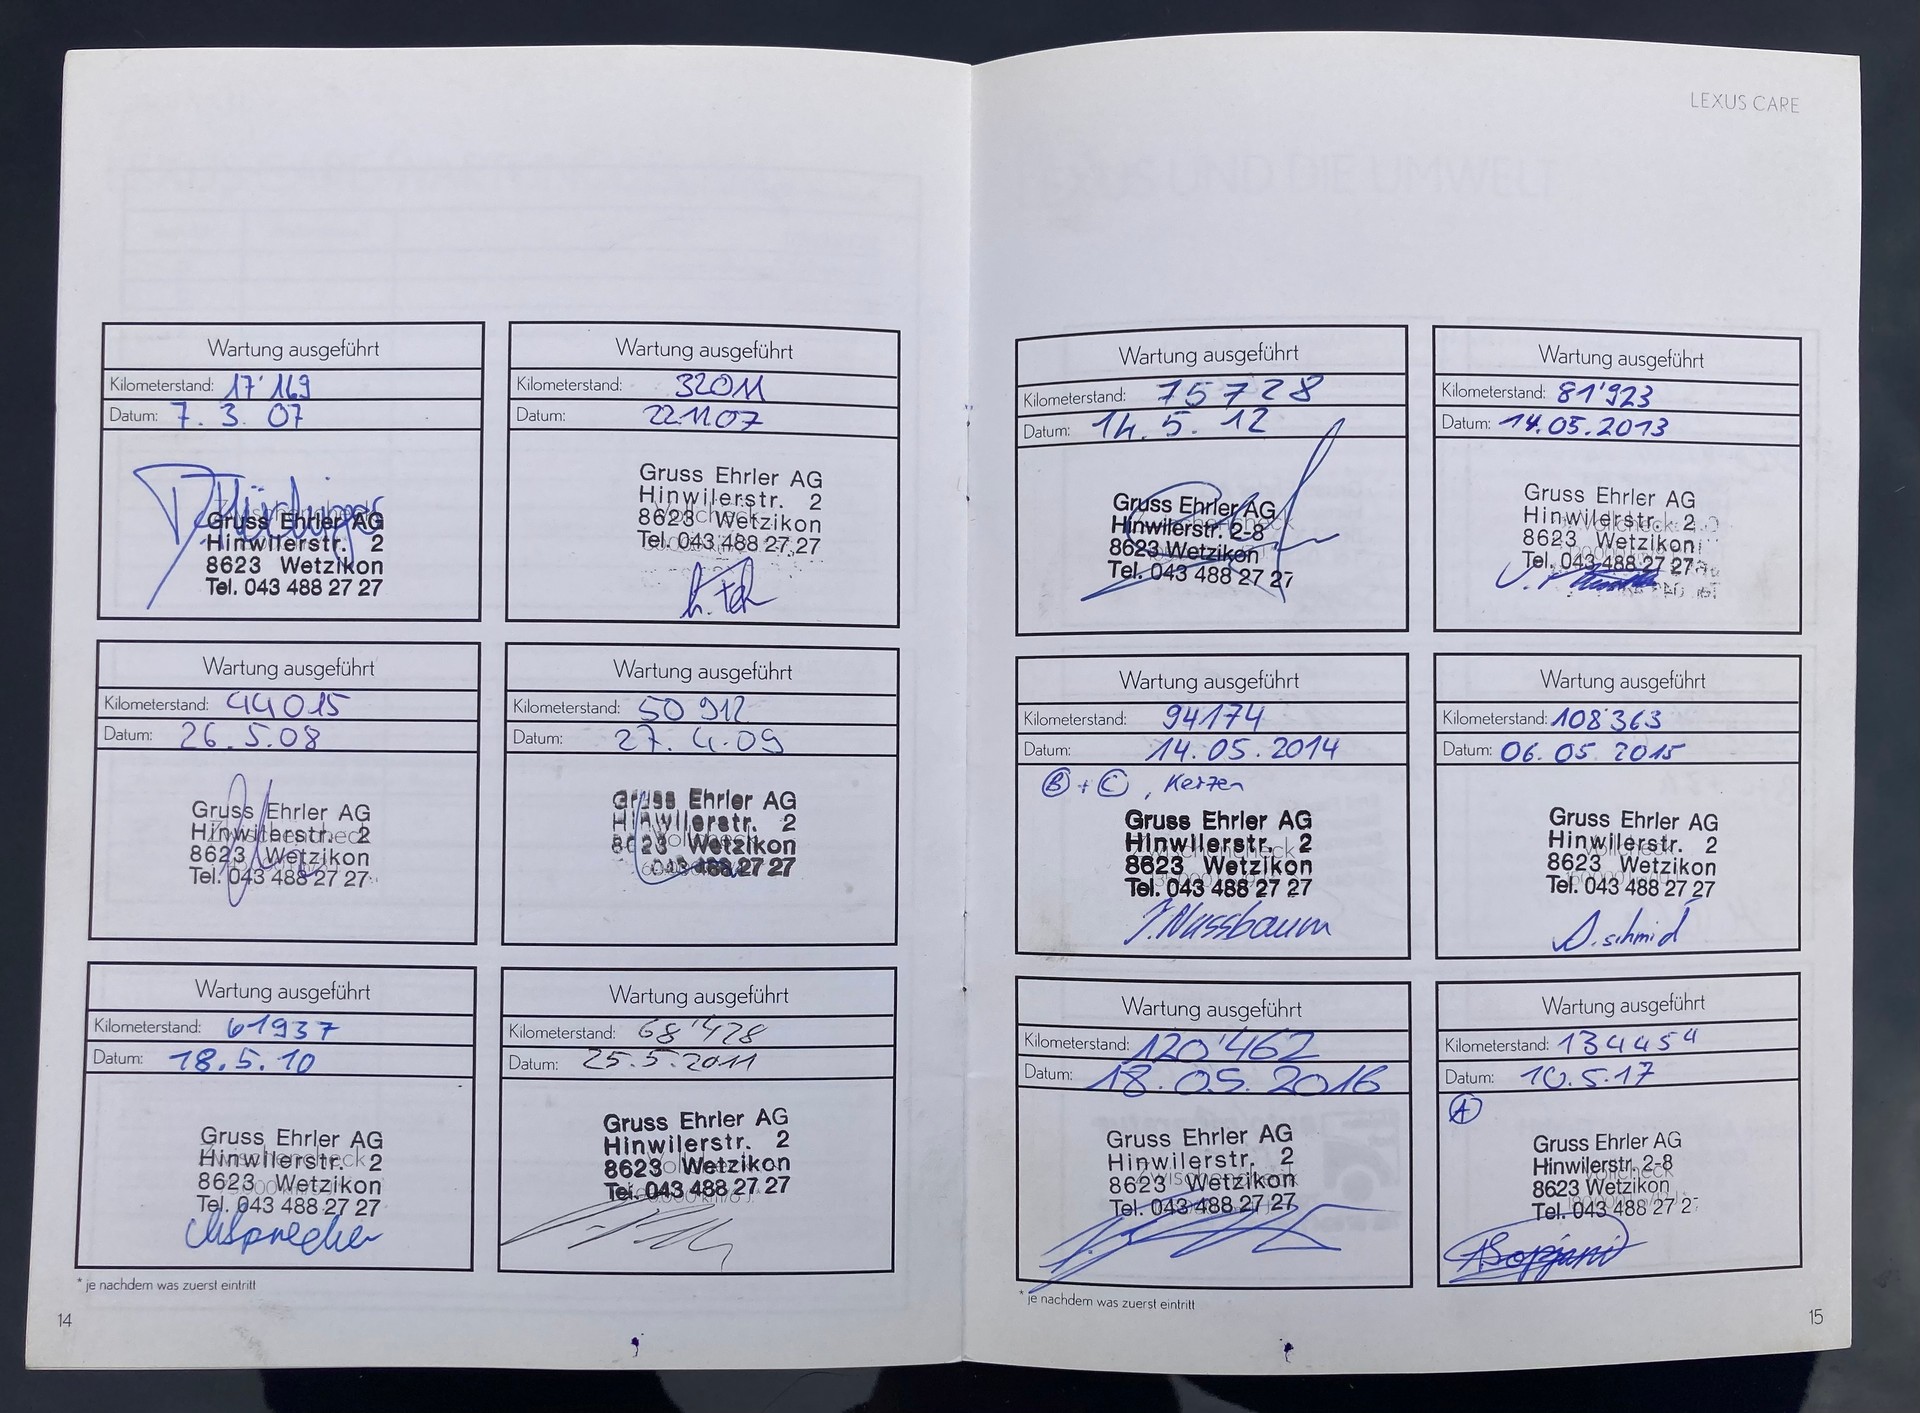 LEXUS CARE
Wartung ausgeführt
Kilometerstand: 17'169
Datum: 7. 3. 07
Zwischencheck
Gruss Ehrler AG
Hinwilerstr. 2
8623 Wetzikon
Tel. 043 488 27 27
Wartung ausgeführt
Kilometerstand: 32011
Datum: 22.11.07
Gruss Ehrler AG
Hinwilerstr. 2
8623 Wetzikon
Tel. 043 488 27 27
Wartung ausgeführt
Kilometerstand: 44015
Datum: 26.5.08
Gruss Ehrler AG
Hinwilerstr. 2
Zwischencheck
8623 Wetzikon
Tel. 043 488 27 27
Wartung ausgeführt
Kilometerstand: 50912
Datum: 27.4.09
Gruss Ehrler AG
Hinwilerstr. 2
8623 Wetzikon
043 488 27 27
Wartung ausgeführt
Kilometerstand: 61937
Datum: 18.5.10
Gruss Ehrler AG
Zwischencheck
Hinwilerstr. 2
8623 Wetzikon
Tel. 043 488 27 27
Wartung ausgeführt
Kilometerstand: 68'428
Datum: 25.5.2011
Gruss Ehrler AG
Hinwilerstr. 2
8623 Wetzikon
Tel. 043 488 27 27
* je nachdem was zuerst eintritt
14
Wartung ausgeführt
Kilometerstand: 75728
Datum: 14.5.12
Gruss Ehrler AG
Zwischencheck
Hinwilerstr. 2-8
8623 Wetzikon
Tel. 043 488 27 27
Wartung ausgeführt
Kilometerstand: 81'923
Datum: 14.05.2013
Gruss Ehrler AG
Hinwilerstr. 2
8623 Wetzikon
Tel. 043 488 27 27
Wartung ausgeführt
Kilometerstand: 94174
Datum: 14.05.2014
B + C, Kerzen
Gruss Ehrler AG
Hinwilerstr. 2
Zwischencheck
8623 Wetzikon
Tel. 043 488 27 27
J. Nussbaum
Wartung ausgeführt
Kilometerstand: 108'363
Datum: 06.05.2015
Gruss Ehrler AG
Hinwilerstr. 2
8623 Wetzikon
Tel. 043 488 27 27
D. schmid
Wartung ausgeführt
Kilometerstand: 120'462
Datum: 18.05.2016
Gruss Ehrler AG
Hinwilerstr. 2
Zwischencheck
8623 Wetzikon
Tel. 043 488 27 27
Wartung ausgeführt
Kilometerstand: 134454
Datum: 10.5.17
A
Gruss Ehrler AG
Hinwilerstr. 2-8
8623 Wetzikon
Tel. 043 488 27 2
* je nachdem was zuerst eintritt
15